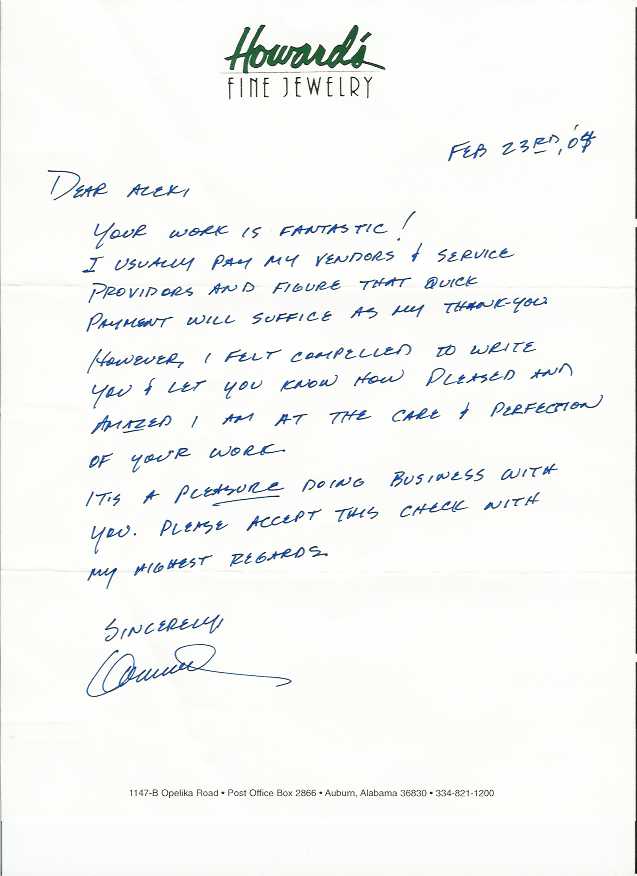 Howard's
FINE JEWELRY
FEB 23RD,
DEAR ALEX,
YOUR WORK IS FANTASTIC!
I USUALLY PAY MY VENDORS & SERVICE
PROVIDORS AND FIGURE THAT QUICK
PAYMENT WILL SUFFICE AS MY THANK-YOU
HOWEVER, I FELT COMPELLED TO WRITE
YOU & LET YOU KNOW HOW PLEASED AND
AMAZED I AM AT THE CARE & PERFECTION
OF YOUR WORK.
IT'S A PLEASURE DOING BUSINESS WITH
YOU. PLEASE ACCEPT THIS CHECK WITH
MY HIGHEST REGARDS.
SINCERELY,
1147-B Opelika Road • Post Office Box 2866 • Auburn, Alabama 36830 • 334-821-1200